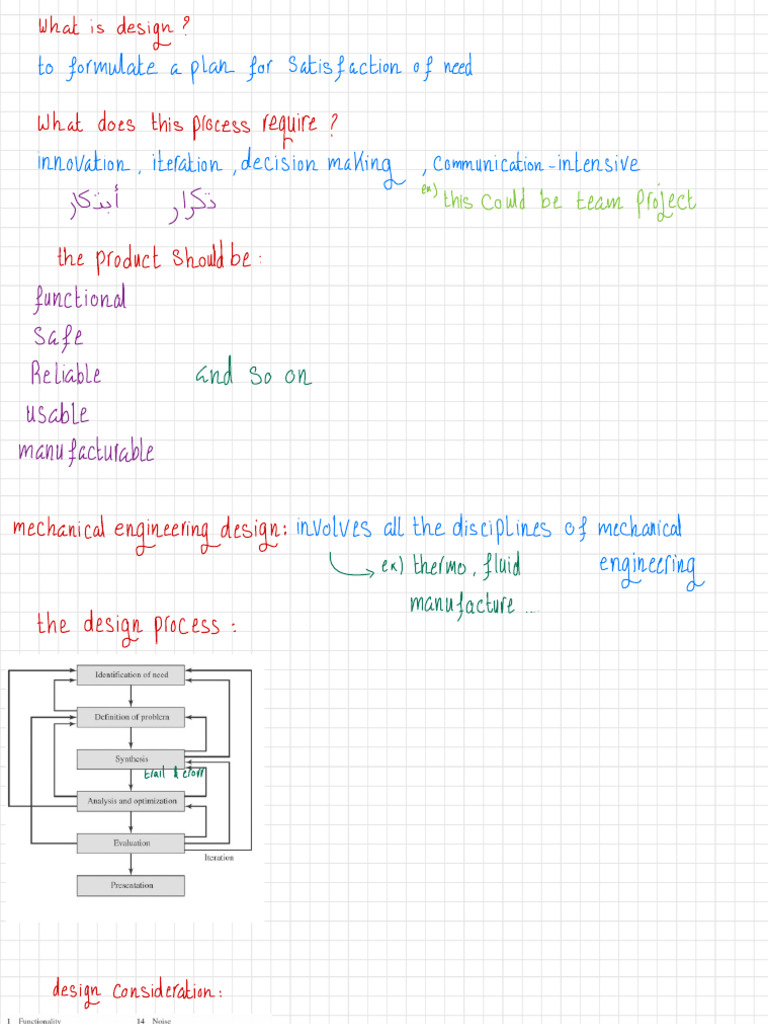 What is design?
to formulate a plan for satisfaction of need
What does this process require?
innovation, iteration, decision making, communication-intensive
أبتكار تكرار
ex) this could be team project
the product should be:
functional
safe
Reliable and so on
usable
manufacturable
mechanical engineering design: involves all the disciplines of mechanical
ex) thermo, fluid engineering
manufacture ...
the design process:
Identification of need
Definition of problem
Synthesis
trail & erorr
Analysis and optimization
Evaluation
Iteration
Presentation
design consideration:
1 Functionality 14 Noise